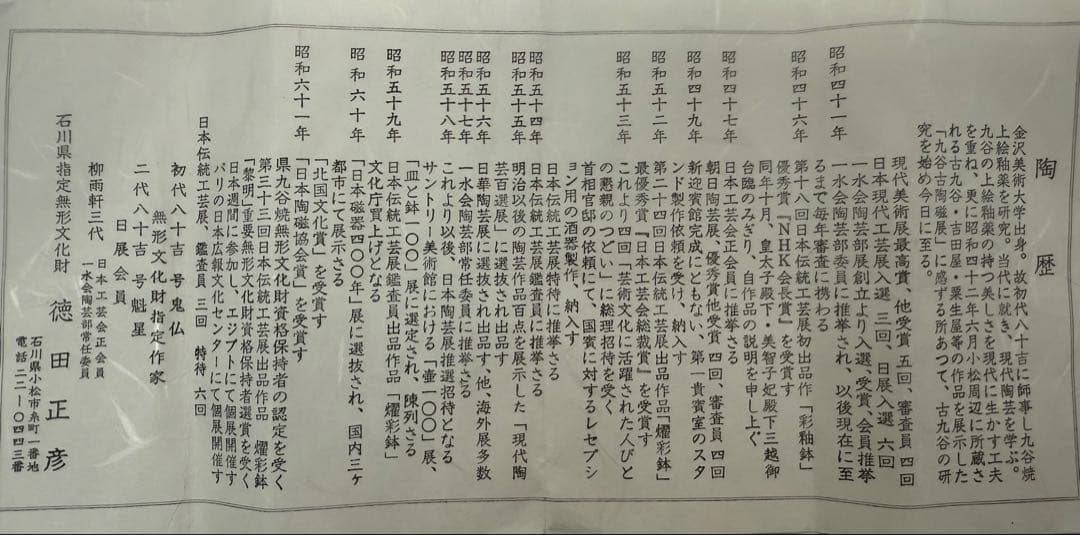 陶歴
金沢美術大学出身。故初代八十吉に師事し九谷焼
上絵釉薬を研究。当代に就き、現代陶芸を学ぶ。
九谷の上絵釉薬の持つ美しさを現代に生かす工夫
を重ね、更に昭和四十二年六月小松周辺に所蔵さ
れる古九谷・吉田屋・粟生屋等の作品を展示した
「九谷古陶磁展」に感ずる所あって、古九谷の研
究を始め今日に至る。
現代美術展最高賞、他受賞 五回、審査員 四回
日本現代工芸展入選 三回、日展入選 六回
昭和四十一年 一水会陶芸部展創立より入選、受賞、会員推挙
一水会陶芸部委員に推挙され、以後現在に至
るまで毎年審査に携わる
昭和四十六年 第十八回日本伝統工芸展初出品作「彩釉鉢」
優秀賞『NHK会長賞』を受賞す
同年十月、皇太子殿下・美智子妃殿下三越御
台臨のみぎり、自作品の説明を申し上ぐ
昭和四十七年 日本工芸会正会員に推挙さる
朝日陶芸展、優秀賞他受賞 四回、審査員 四回
昭和四十九年 新迎賓館完成にともない、第一貴賓室のスタ
ンド製作依頼を受け、納入す
昭和五十二年 第二十四回日本伝統工芸展出品作「燿彩鉢」
最優秀賞『日本工芸会総裁賞』を受賞す
昭和五十三年 これより四回「芸術文化に活躍された人びと
の懇親のつどい」に総理招待を受く
首相官邸の依頼にて、国賓に対するレセプシ
ョン用の酒器製作、納入す
昭和五十四年 日本伝統工芸展特待に推挙さる
日本伝統工芸展鑑査員に推挙さる
昭和五十五年 明治以後の陶芸作品百点を展示した「現代陶
芸百選展」に選抜され出品す
昭和五十六年 日華陶芸展に選抜され出品す、他、海外展多数
昭和五十七年 一水会陶芸部常任委員に推挙さる
昭和五十八年 これより以後、日本陶芸展推選招待となる
サントリー美術館における「壷一〇〇」展、
「皿と鉢一〇〇」展に選定され、陳列さる
昭和五十九年 日本伝統工芸展鑑査員出品作「燿彩鉢」
文化庁買上げとなる
昭和六十年 「日本磁器四〇〇年」展に選抜され、国内三ヶ
都市にて展示さる
「北国文化賞」を受賞す
昭和六十一年 「日本陶磁協会賞」を受賞す
県九谷焼無形文化財資格保持者の認定を受く
第三十三回日本伝統工芸展出品作品 燿彩鉢
「黎明」重要無形文化財資格保持者選賞を受く
日本週間に参加し、エジプトにて個展開催す
パリの日本広報文化センターにて個展開催す
日本伝統工芸展、鑑査員 三回 特待 六回
初代八十吉 号鬼仏
無形文化財指定作家
二代八十吉 号魁星
日展会員
柳雨軒三代 日本工芸会正会員
一水会陶芸部常任委員
石川県指定無形文化財 徳田正彦
石川県小松市糸町一番地
電話二二―〇四四三番